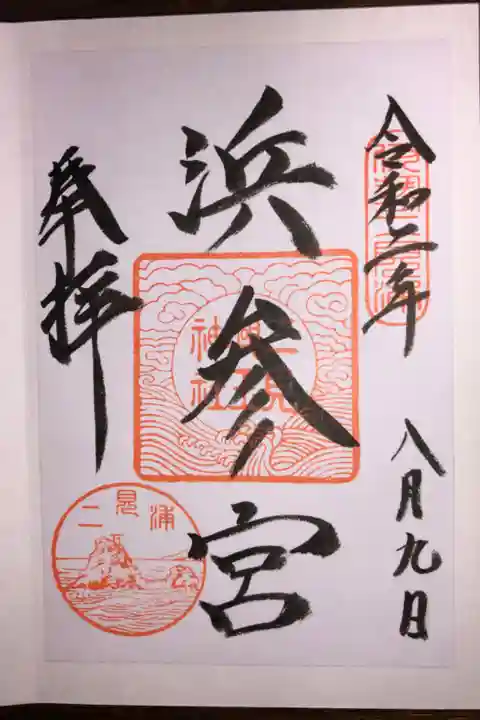 令和二年 八月九日
浜参宮
二見
興玉
神社
奉拝
二見浦